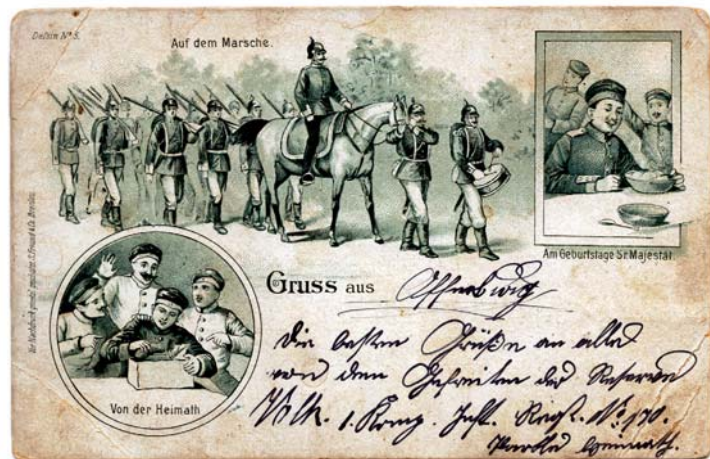 Delsin Nº 5.
Auf dem Marsche.
Am Geburtstage Sr Majestät.
Von der Heimath
Gruss aus Offenburg
Die besten Grüße an alle
von dem Gefreiten der Reserve
Volk. 1. Komp. Inft. Regt. Nº 170.